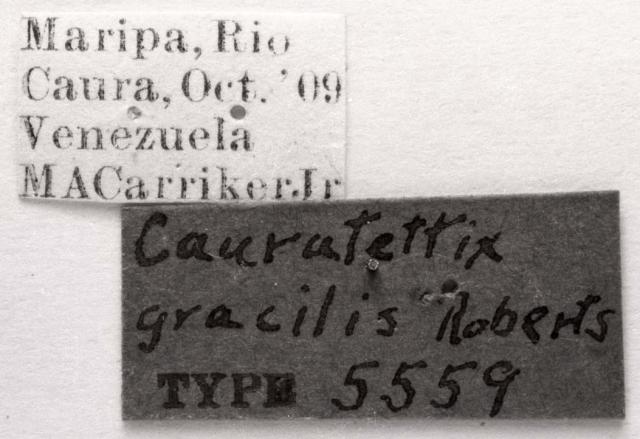 Maripa, Rio
Caura, Oct. '09
Venezuela
MACarrikerJr
Cauratettix
gracilis Roberts
TYPE 5559